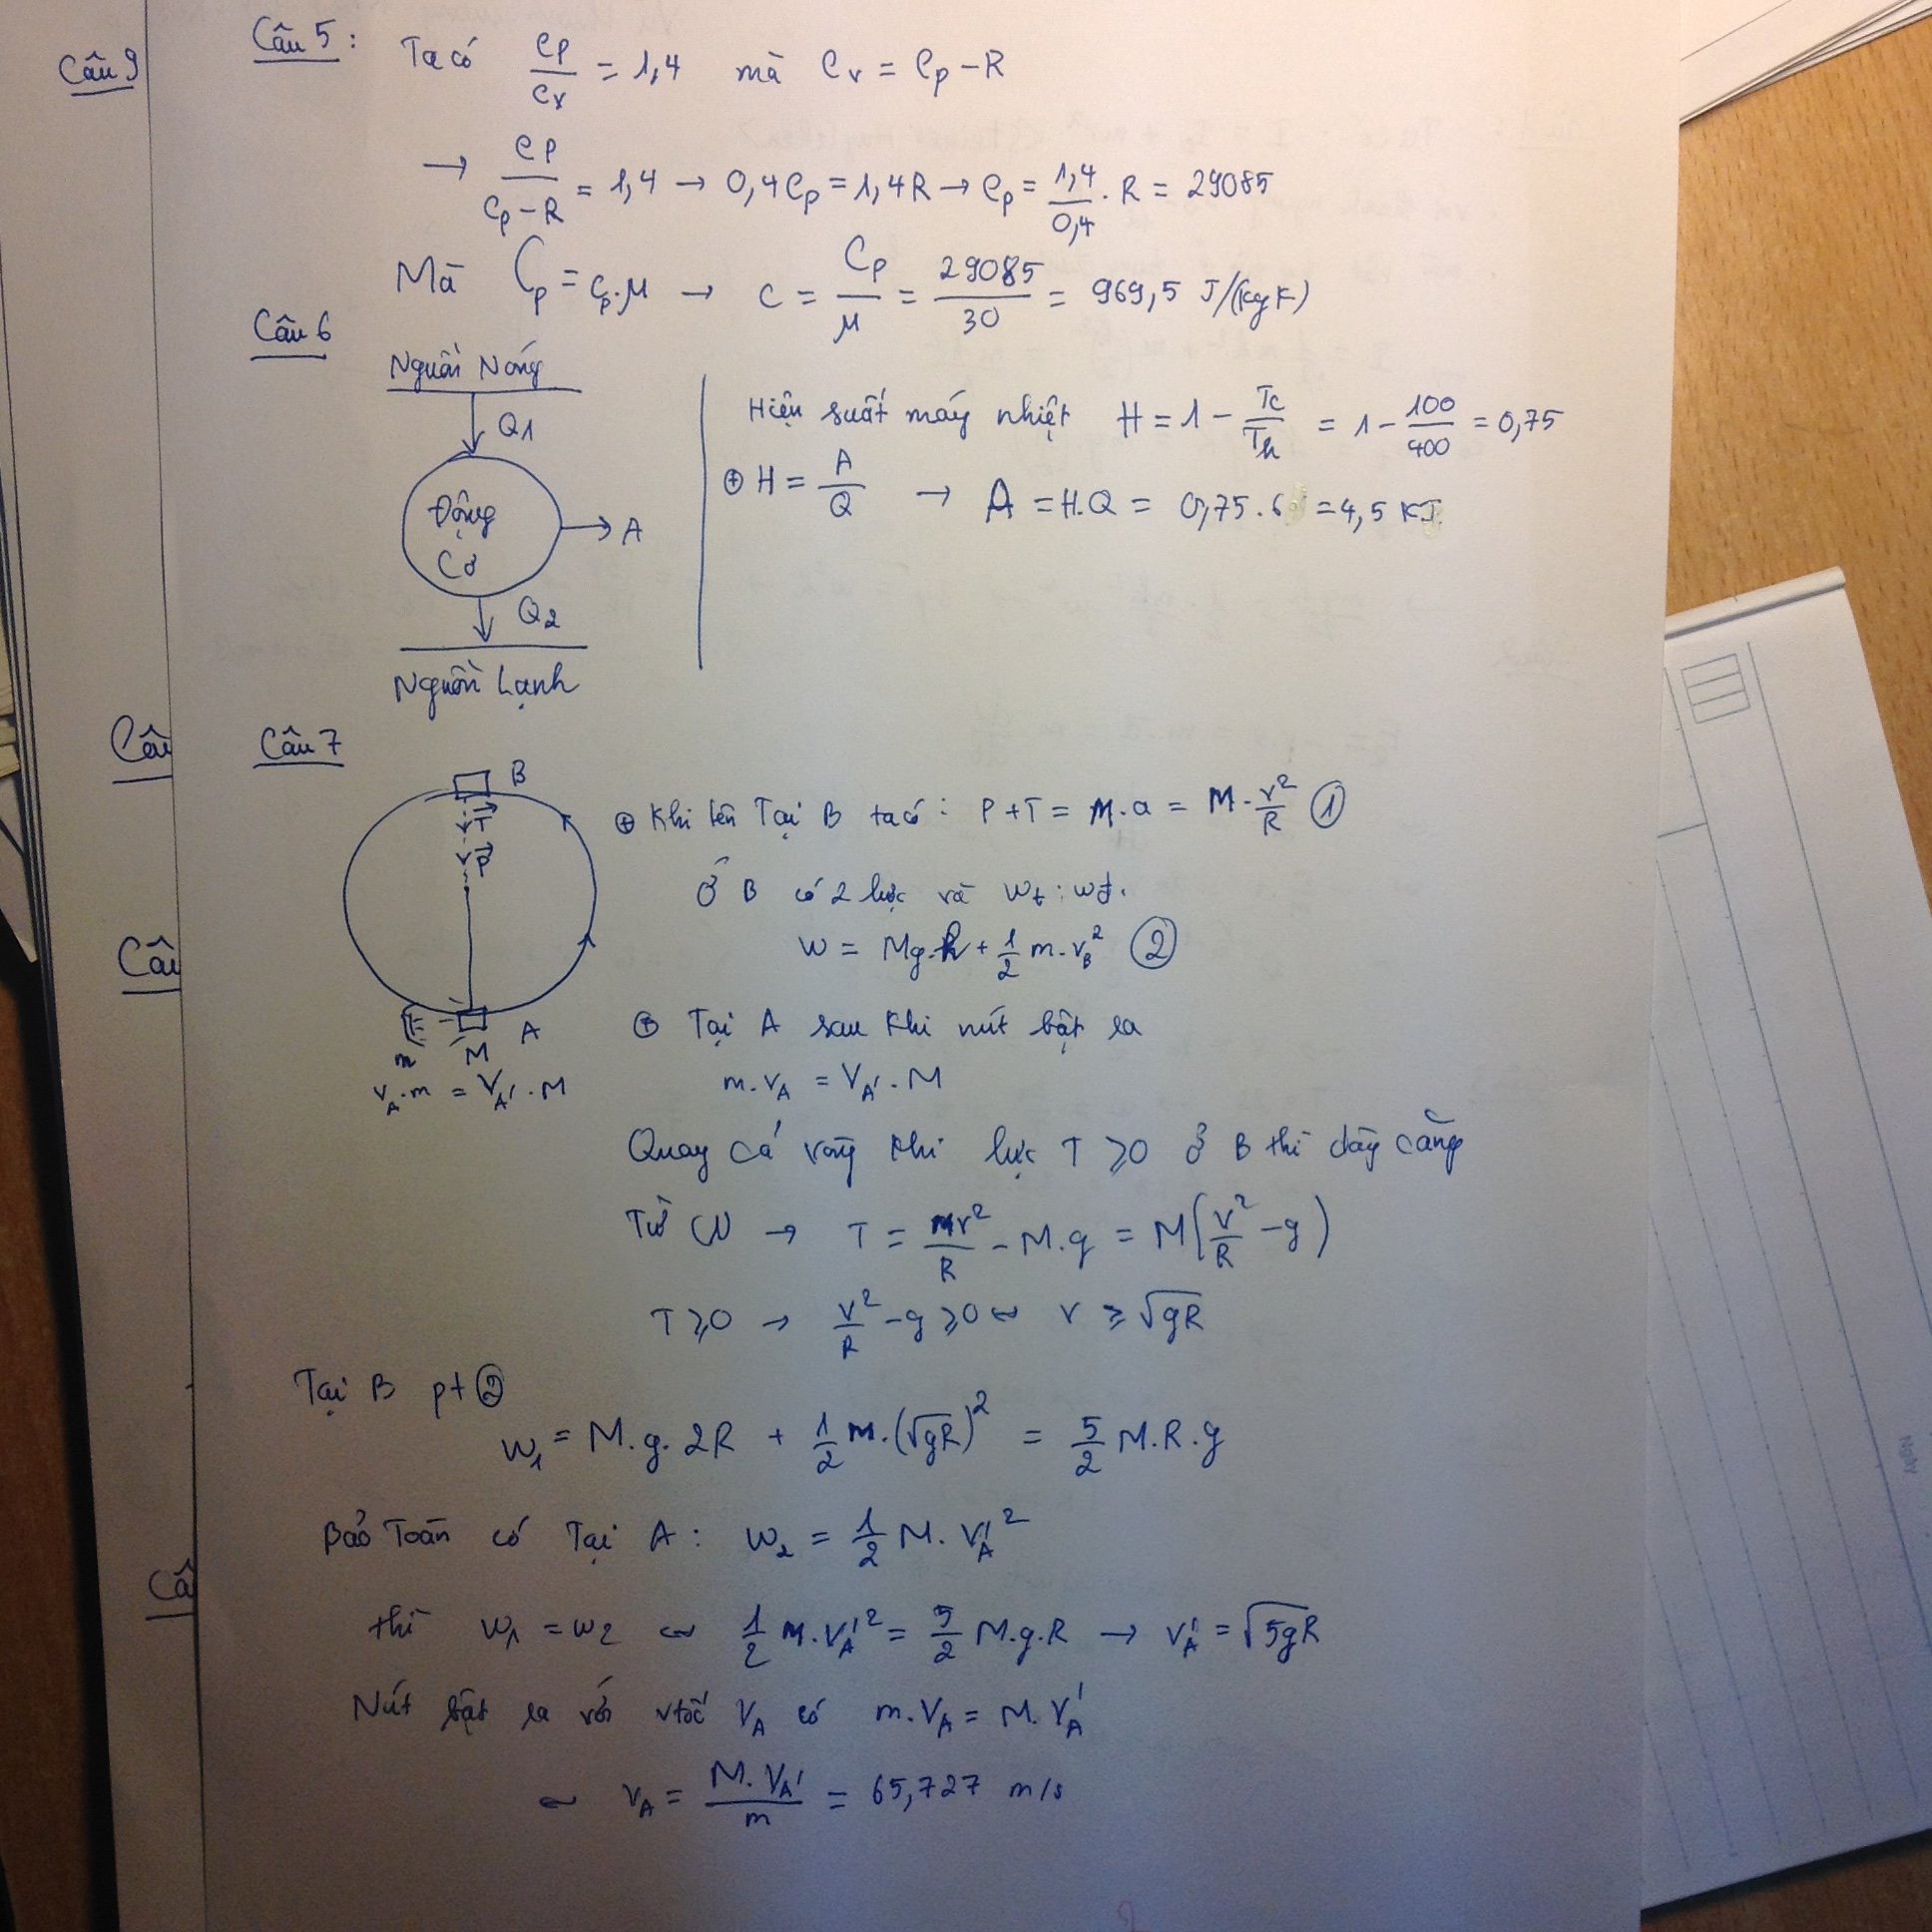 Câu 9
Câu 5 : Ta có Cp/Cv = 1,4 mà Cv = Cp - R
→ Cp/(Cp - R) = 1,4 → 0,4Cp = 1,4R → Cp = 1,4/0,4 . R = 29085
Mà Cp = Cp.μ → C = Cp/μ = 29085/30 = 969,5 J/(kgK)
Câu 6
Nguồn Nóng
Q1
Động
Cơ
A
Q2
Nguồn Lạnh
Hiệu suất máy nhiệt H = 1 - Tc/Th = 1 - 100/400 = 0,75
⊕ H = A/Q → A = H.Q = 0,75.6 = 4,5 KJ
Câu
Câu 7
B
T
P
m
M
A
V_A.m = V_A'.M
⊕ Khi lên Tại B ta có : P + T = M.a = M.v²/R ①
Ở B có 2 lực và Wt : Wđ.
W = Mg.h + 1/2 m.v_B² ②
Câu
⊕ Tại A sau khi nút bật ra
m.V_A = V_A'.M
Quay cả vòng khi lực T ≥ 0 ở B thì dây căng
Từ (1) → T = Mv²/R - M.g = M(v²/R - g)
T ≥ 0 → v²/R - g ≥ 0 ∽ v ≥ √gR
Tại B pt ②
W₁ = M.g.2R + 1/2 M.(√gR)² = 5/2 M.R.g
Bảo Toàn có Tại A : W₂ = 1/2 M.V_A'²
Câ
thì W₁ = W2 ∽ 1/2 M.V_A'² = 5/2 M.g.R → V_A' = √5gR
Nút bật ra với vtốc V_A có m.V_A = M.V_A'
∽ V_A = M.V_A'/m = 65,727 m/s